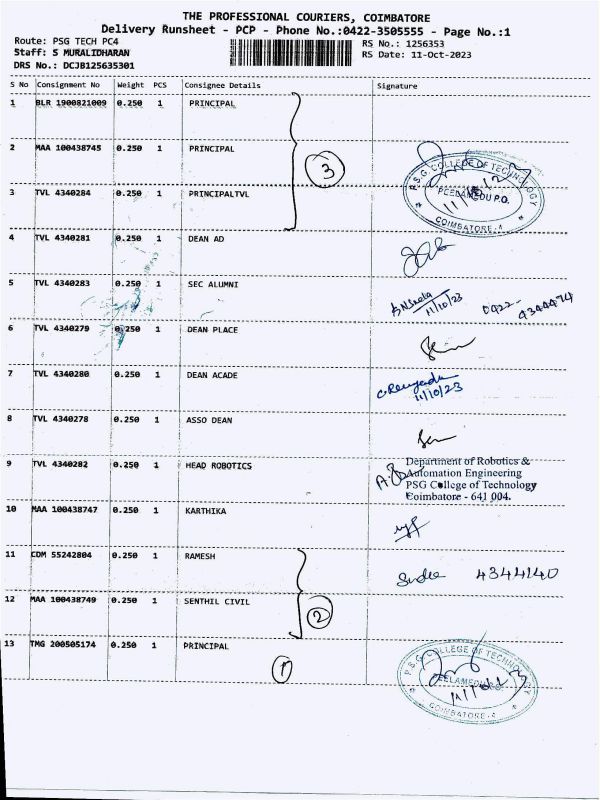 THE PROFESSIONAL COURIERS, COIMBATORE
Delivery Runsheet - PCP - Phone No.:0422-3505555 - Page No.:1
Route: PSG TECH PC4
Staff: S MURALIDHARAN
DRS No.: DCJB125635301
RS No.: 1256353
RS Date: 11-Oct-2023
S No Consignment No Weight PCS Consignee Details Signature
1 BLR 1900821009 0.250 1 PRINCIPAL
2 MAA 100438745 0.250 1 PRINCIPAL
3
P.S.G. COLLEGE OF TECHNOLOGY
PEELAMEDU P.O.
COIMBATORE-4
3 TVL 4340284 0.250 1 PRINCIPALTVL
4 TVL 4340281 0.250 1 DEAN AD
5 TVL 4340283 0.250 1 SEC ALUMNI
11/10/23
0422-
4344474
6 TVL 4340279 0.250 1 DEAN PLACE
7 TVL 4340280 0.250 1 DEAN ACADE
11/10/23
8 TVL 4340278 0.250 1 ASSO DEAN
9 TVL 4340282 0.250 1 HEAD ROBOTICS
Department of Robotics &
Automation Engineering
PSG College of Technology
Coimbatore - 641 004.
10 MAA 100438747 0.250 1 KARTHIKA
11 CDM 55242804 0.250 1 RAMESH
4344140
12 MAA 100438749 0.250 1 SENTHIL CIVIL
2
13 TMG 200505174 0.250 1 PRINCIPAL
1
P.S.G. COLLEGE OF TECHNOLOGY
PEELAMEDU P.O.
COIMBATORE-4